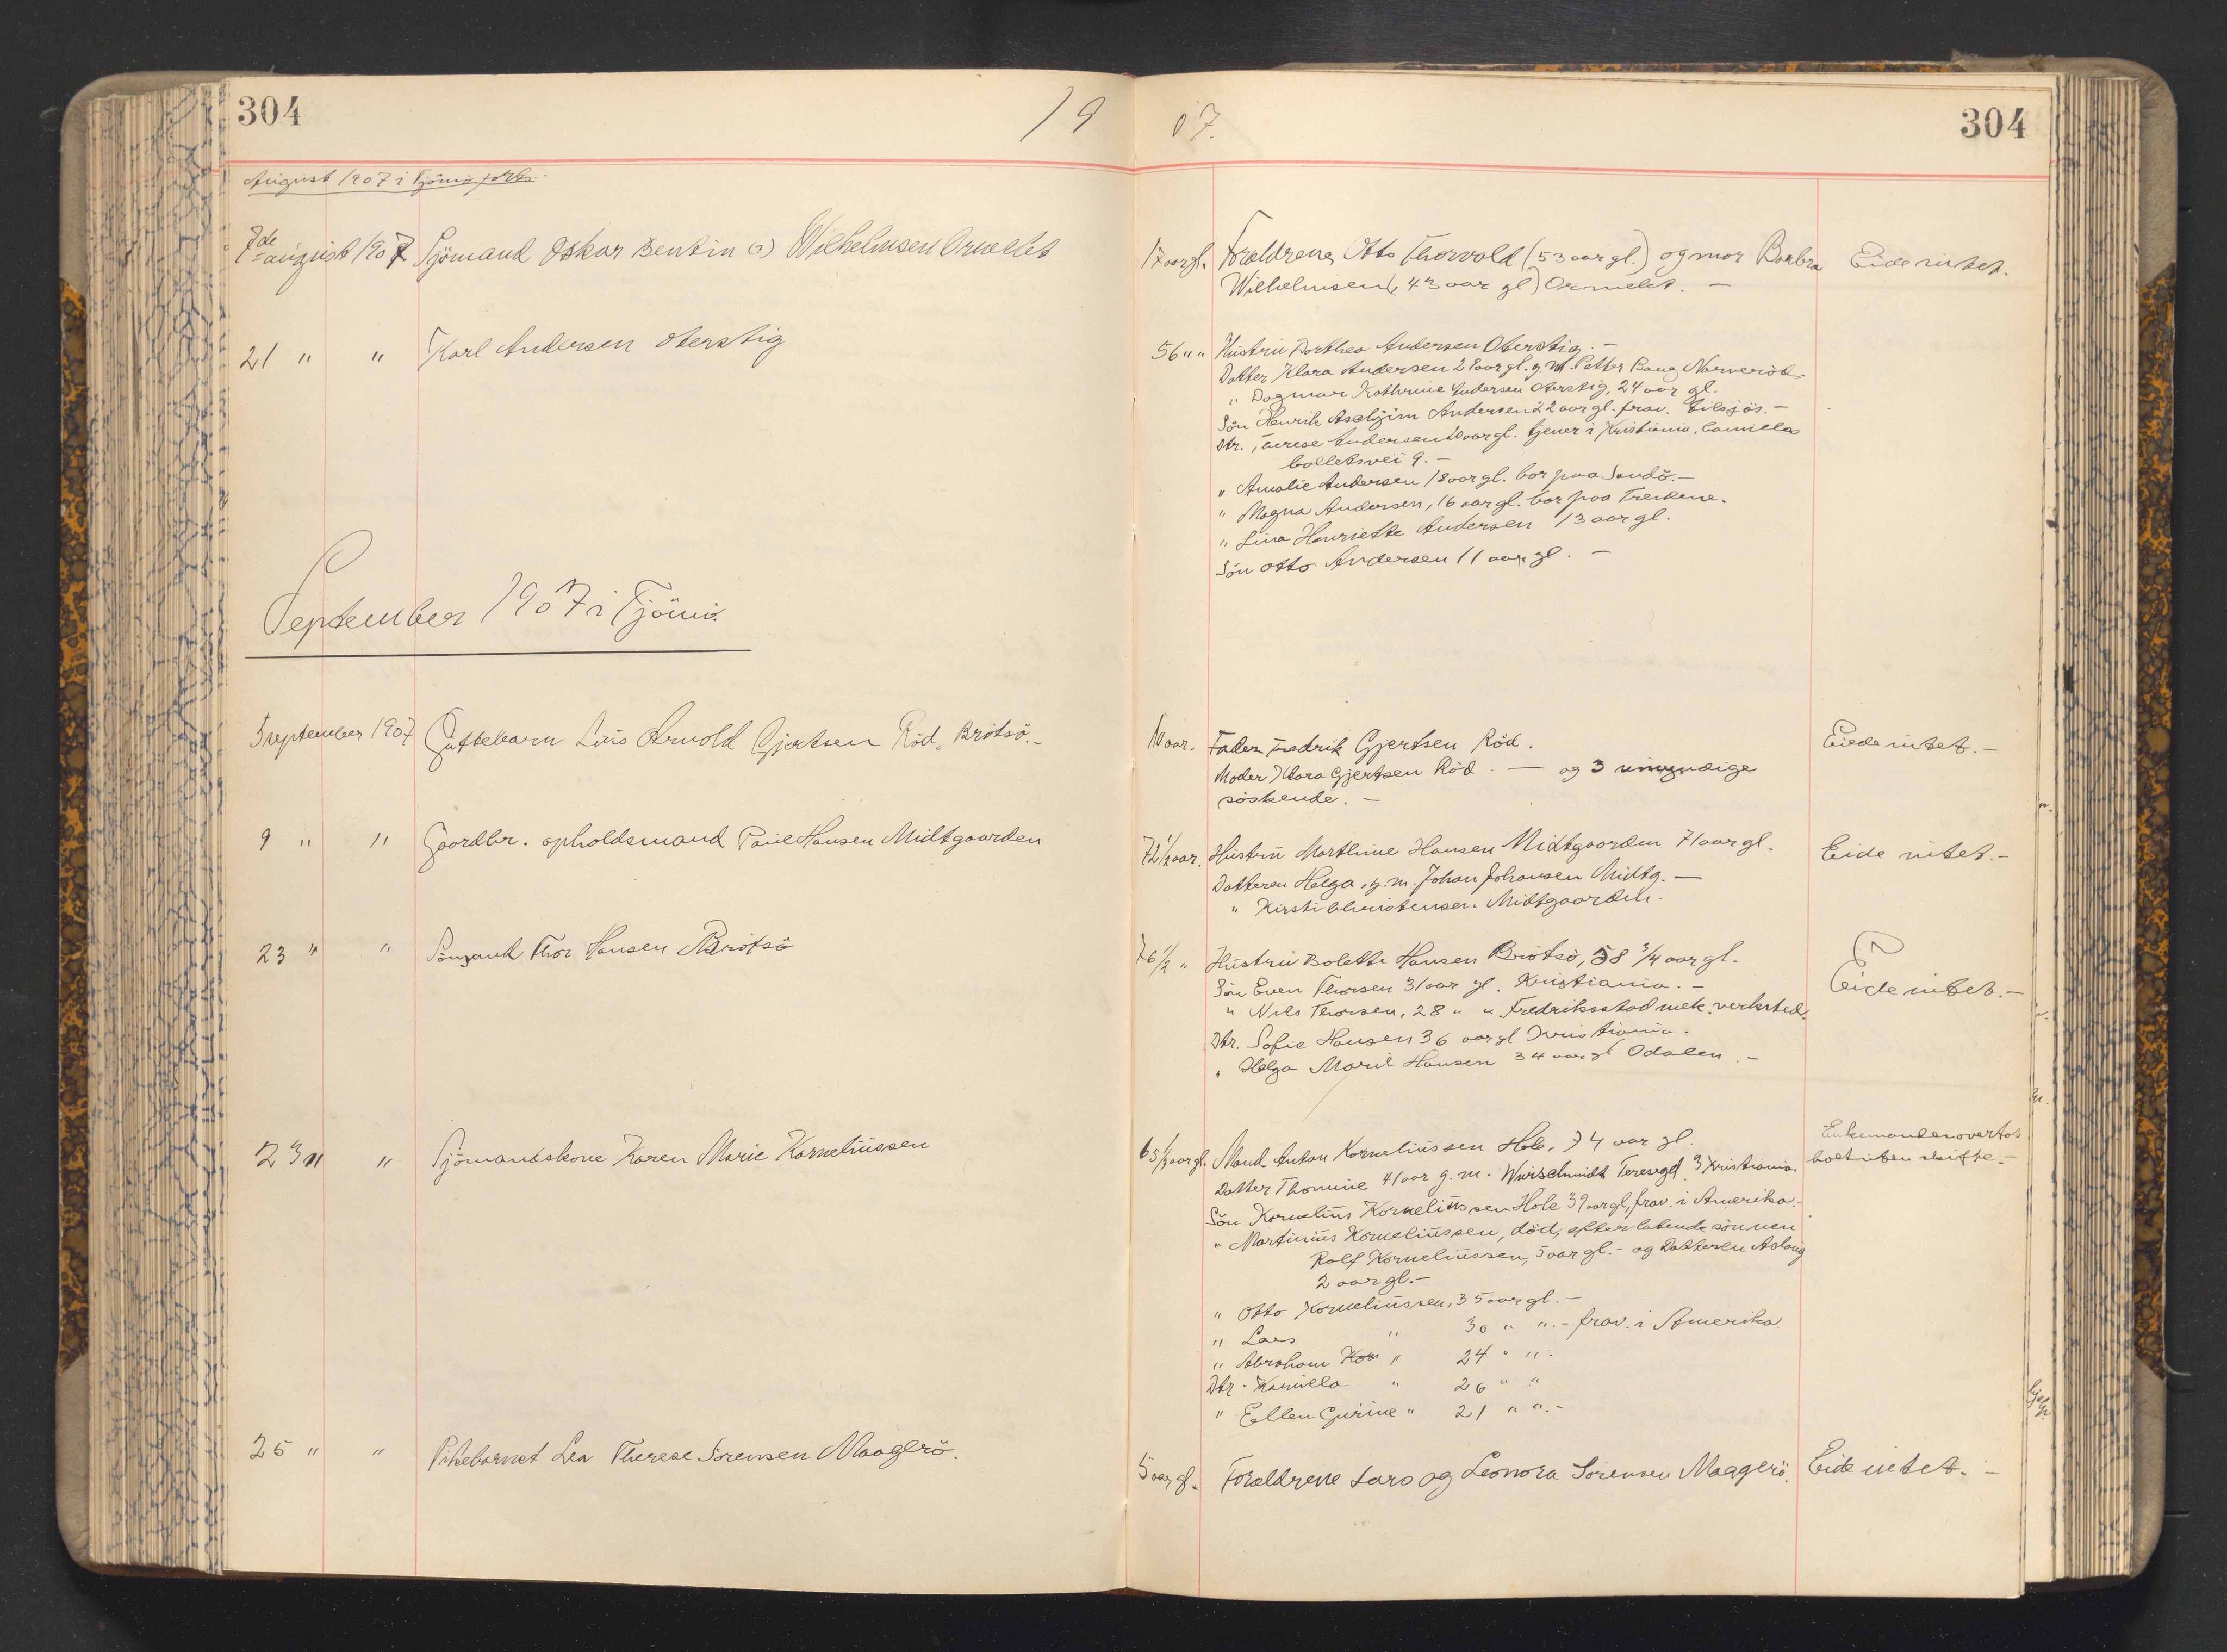 304
19 07.
304
August 1907 i Tjömö forts.
7de august 1907 Sjömand Oskar Bentin (?) Wilhelmsen Ormelet
17 aar gl. Forældrene Otto Thorvald (53 aar gl.) og mor Barbra
Wilhelmsen (43 aar gl) Ormelet. —
Eide intet.
21 " " Karl Andersen Oterstig
56 " " Hustru Dorthea Andersen Oterstig. —
Datter Klara Andersen 28 aar gl. g. m. Petter Bang Narveröd.
" Dagmar Kathrine Andersen Oterstig, 24 aar gl.
Sön Henrik Andersen 22 aar gl. frav. tilsjös. —
Dtr. Terese Andersen 20 aar gl. tjener i Kristiania. Camilla
colletsvei 9. —
" Amalie Andersen 18 aar gl. bor paa Sandö. —
" Magna Andersen, 16 aar gl. bor paa
" Lina Henriette Andersen 13 aar gl.
Sön Otto Andersen 11 aar gl. —
September 1907 i Tjömö.
3 september 1907 Guttebarn Lars Arnold Gjertsen Röd, Brötsö. —
10 aar. Fader Fredrik Gjertsen Röd.
Moder Klara Gjertsen Röd. — og 3 umyndige
söskende. —
Eiede intet. —
9 " " Gaardbr. opholdsmand Paul Hansen Midtgaarden
72 1/2 aar. Hustru Marthine Hansen Midtgaarden 71 aar gl.
Datteren Helga, g. m. Johan Johansen Midtg. —
" Kirsti Christensen Midtgaarden.
Eide intet. —
23 " " Sömand Thor Hansen Brötsö
76 1/2 " Hustru Bolette Hansen Brötsö, 58 3/4 aar gl.
Sön Even Thorsen 31 aar gl. Kristiania. —
" Nils Thorsen, 28 " " Fredriksstad mek. verksted.
Dtr. Sofie Hansen 36 aar gl Kristiania.
" Helga Marie Hansen 34 aar gl Odalen. —
Eide intet. —
23 " " Sjömandskone Karen Marie Korneliussen
65 1/2 aar gl. Mand. Anton Korneliussen Hole. 74 aar gl.
Datter Thomine 41 aar g. m. Wurschmidt Teresegd. 3 Kristiania.
Sön Kornelius Korneliussen Hole 39 aar gl, frav. i Amerika. —
" Martinius Korneliussen, död, efterlatende sönnen
Rolf Korneliussen, 5 aar gl. - og Datteren Aslaug
2 aar gl. —
" Otto Korneliussen, 35 aar gl. —
" Lars " 30 " ". - frav. i Amerika.
" Abraham Kor " 24 " ".
Dtr - Kamilla " 26 " "
" Ellen Gurine " 21 " ". —
Enkemanden overtok
boet uten skifte. —
25 " " Pikebarnet Lea Therese Sörensen Maagerö.
5 aar gl. Forældrene Lars og Leonora Sörensen Maagerö.
Eide intet. —